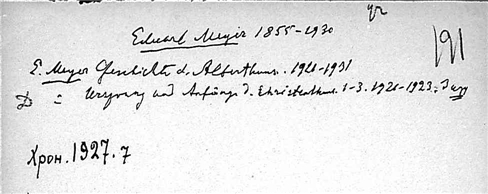 Eduard Meyer 1855-1930
191
E. Meyer Geschichte d. Alterthums. 1921-1931
D = Ursprung und Anfänge d. Christenthums 1-3. 1921-1923.
Хрон. 1927. 7